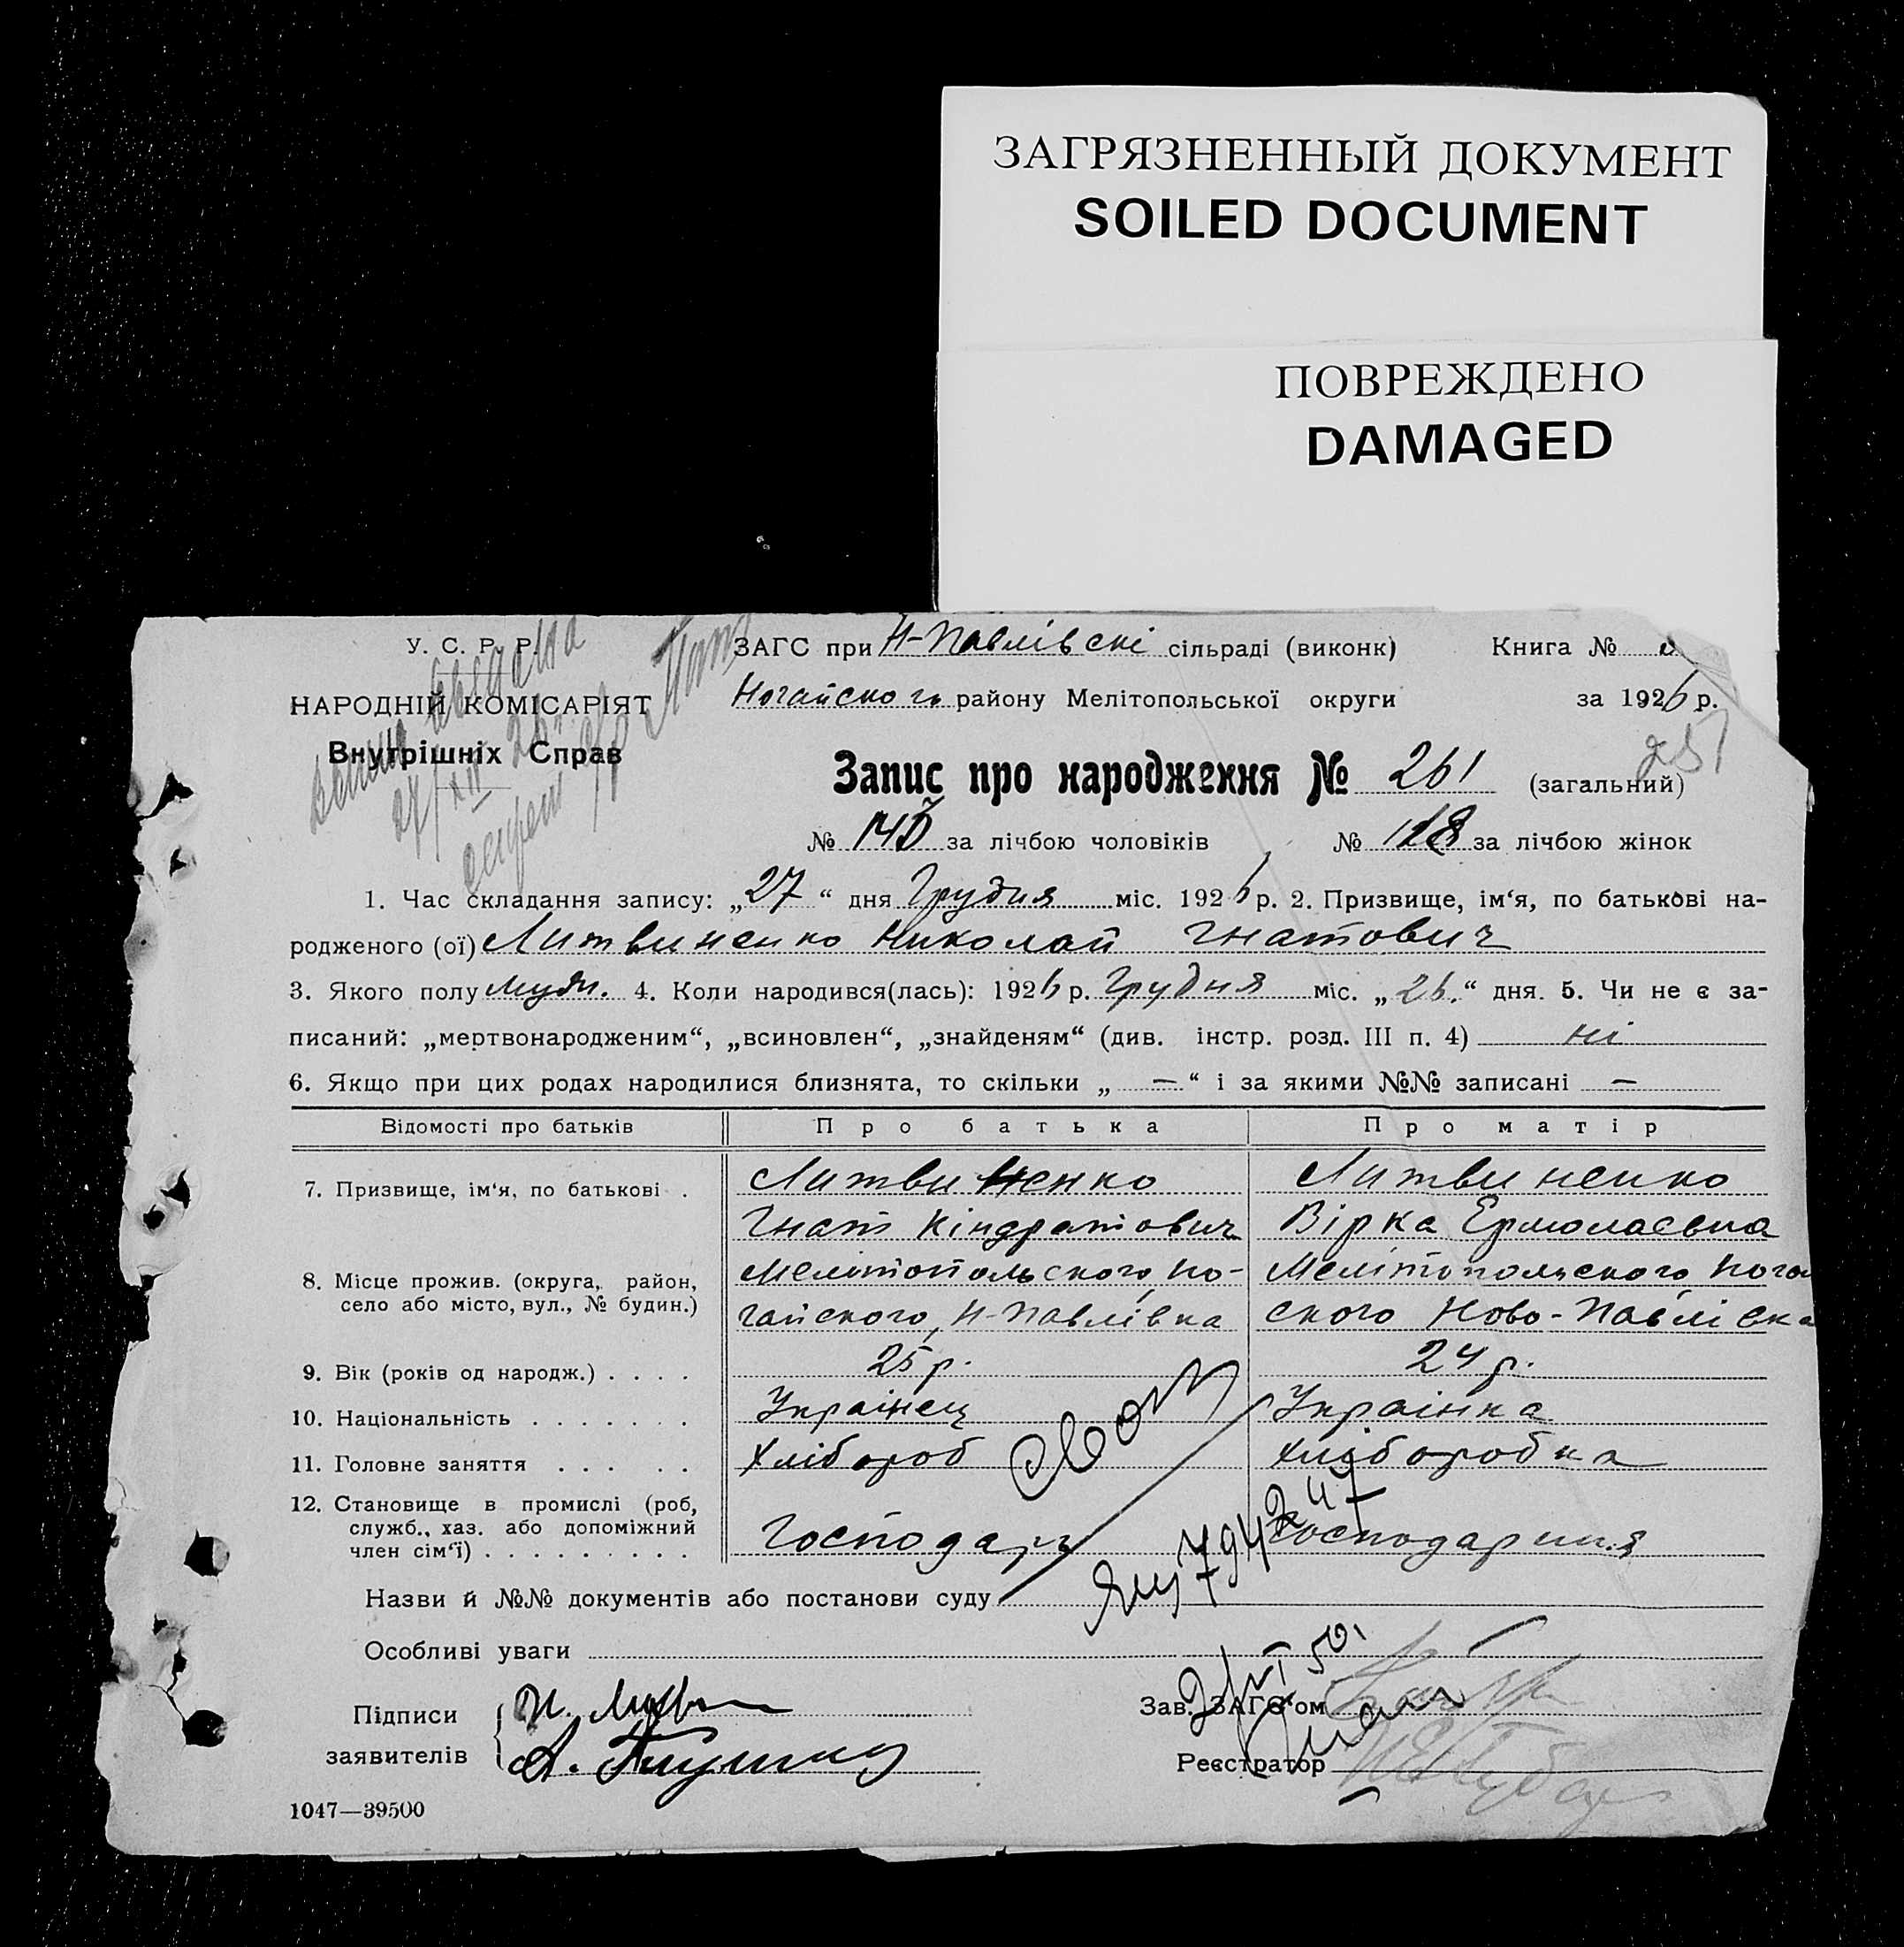 ЗАГРЯЗНЕННЫЙ ДОКУМЕНТ
SOILED DOCUMENT
ПОВРЕЖДЕНО
DAMAGED
У. С. Р. Р.
НАРОДНІЙ КОМІСАРІЯТ
Внутрішніх Справ
ЗАГС при Н-Павлівскі сільраді (виконк) Книга №
Ногайского району Мелітопольської округи за 1926 р.
251
Запис про народження № 261 (загальний)
№ 140 за лічбою чоловіків № 128 за лічбою жінок
1. Час складання запису: „27“ дня Грудня міс. 1926 р. 2. Призвище, ім‘я, по батькові на-
родженого (ої) Литвиненко Николай Гнатович
3. Якого полу муж. 4. Коли народився(лась): 1926 р. Грудня міс. „26.“ дня. 5. Чи не є за-
писаний: „мертвонародженим“, „всиновлен“, „знайденям“ (див. інстр. розд. III п. 4) ні
6. Якщо при цих родах народилися близнята, то скільки „ — “ і за якими №№ записані —
Відомості про батьків Про батька Про матір
7. Призвище, ім‘я, по батькові . Литвиненко Литвиненко
Гнат Кіндратович Вірка Ермолаєвна
8. Місце прожив. (округа, район, село або місто, вул., № будин.) Мелітопольского, Но- Мелітопольского Ногай
гайского, Н-Павлівка ского Ново-Павлівка
9. Вік (років од народж.) . . . . 25 р. 24 р.
10. Національність . . . . . . . Українец Українка
11. Головне заняття . . . . . Хлібороб Хліборобка
12. Становище в промислі (роб, служб., хаз. або допоміжний член сім‘ї) . . . . . . . . . Господарь Господариня
Назви й №№ документів або постанови суду
Особливі уваги
Підписи
заявителів
Зав. ЗАГС‘ом
Реєстратор
1047—39500